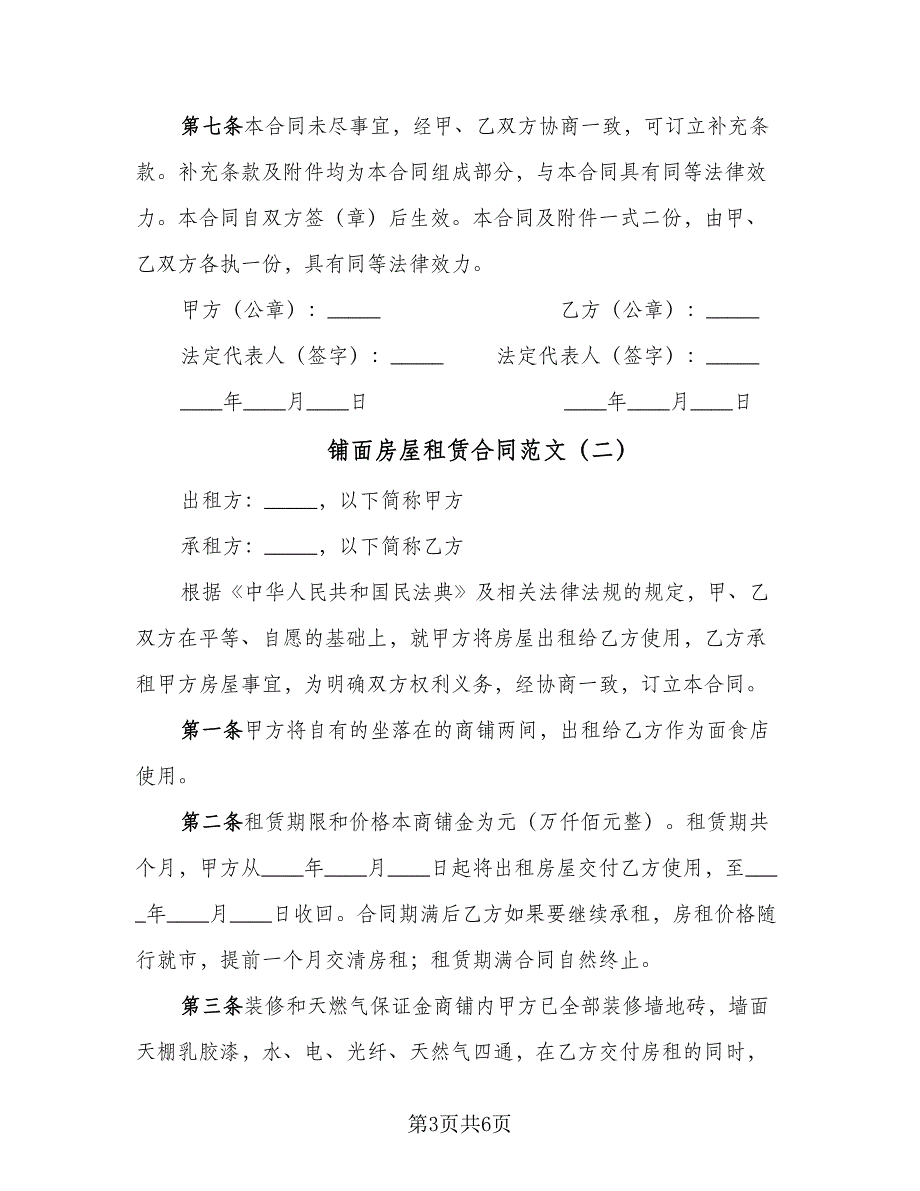 第七条本合同未尽事宜，经甲、乙双方协商一致，可订立补充条
款。补充条款及附件均为本合同组成部分，与本合同具有同等法律效
力。本合同自双方签（章）后生效。本合同及附件一式二份，由甲、
乙双方各执一份，具有同等法律效力。
甲方（公章）：_____ 乙方（公章）：_____
法定代表人（签字）：_____ 法定代表人（签字）：_____
____年____月____日 ____年____月____日
铺面房屋租赁合同范文（二）
出租方：_____，以下简称甲方
承租方：_____，以下简称乙方
根据《中华人民共和国民法典》及相关法律法规的规定，甲、乙
双方在平等、自愿的基础上，就甲方将房屋出租给乙方使用，乙方承
租甲方房屋事宜，为明确双方权利义务，经协商一致，订立本合同。
第一条甲方将自有的坐落在的商铺两间，出租给乙方作为面食店
使用。
第二条租赁期限和价格本商铺金为元（万仟佰元整）。租赁期共
个月，甲方从____年____月____日起将出租房屋交付乙方使用，至___
_年____月____日收回。合同期满后乙方如果要继续承租，房租价格随
行就市，提前一个月交清房租；租赁期满合同自然终止。
第三条装修和天燃气保证金商铺内甲方已全部装修墙地砖，墙面
天棚乳胶漆，水、电、光纤、天然气四通，在乙方交付房租的同时，
第3页共6页